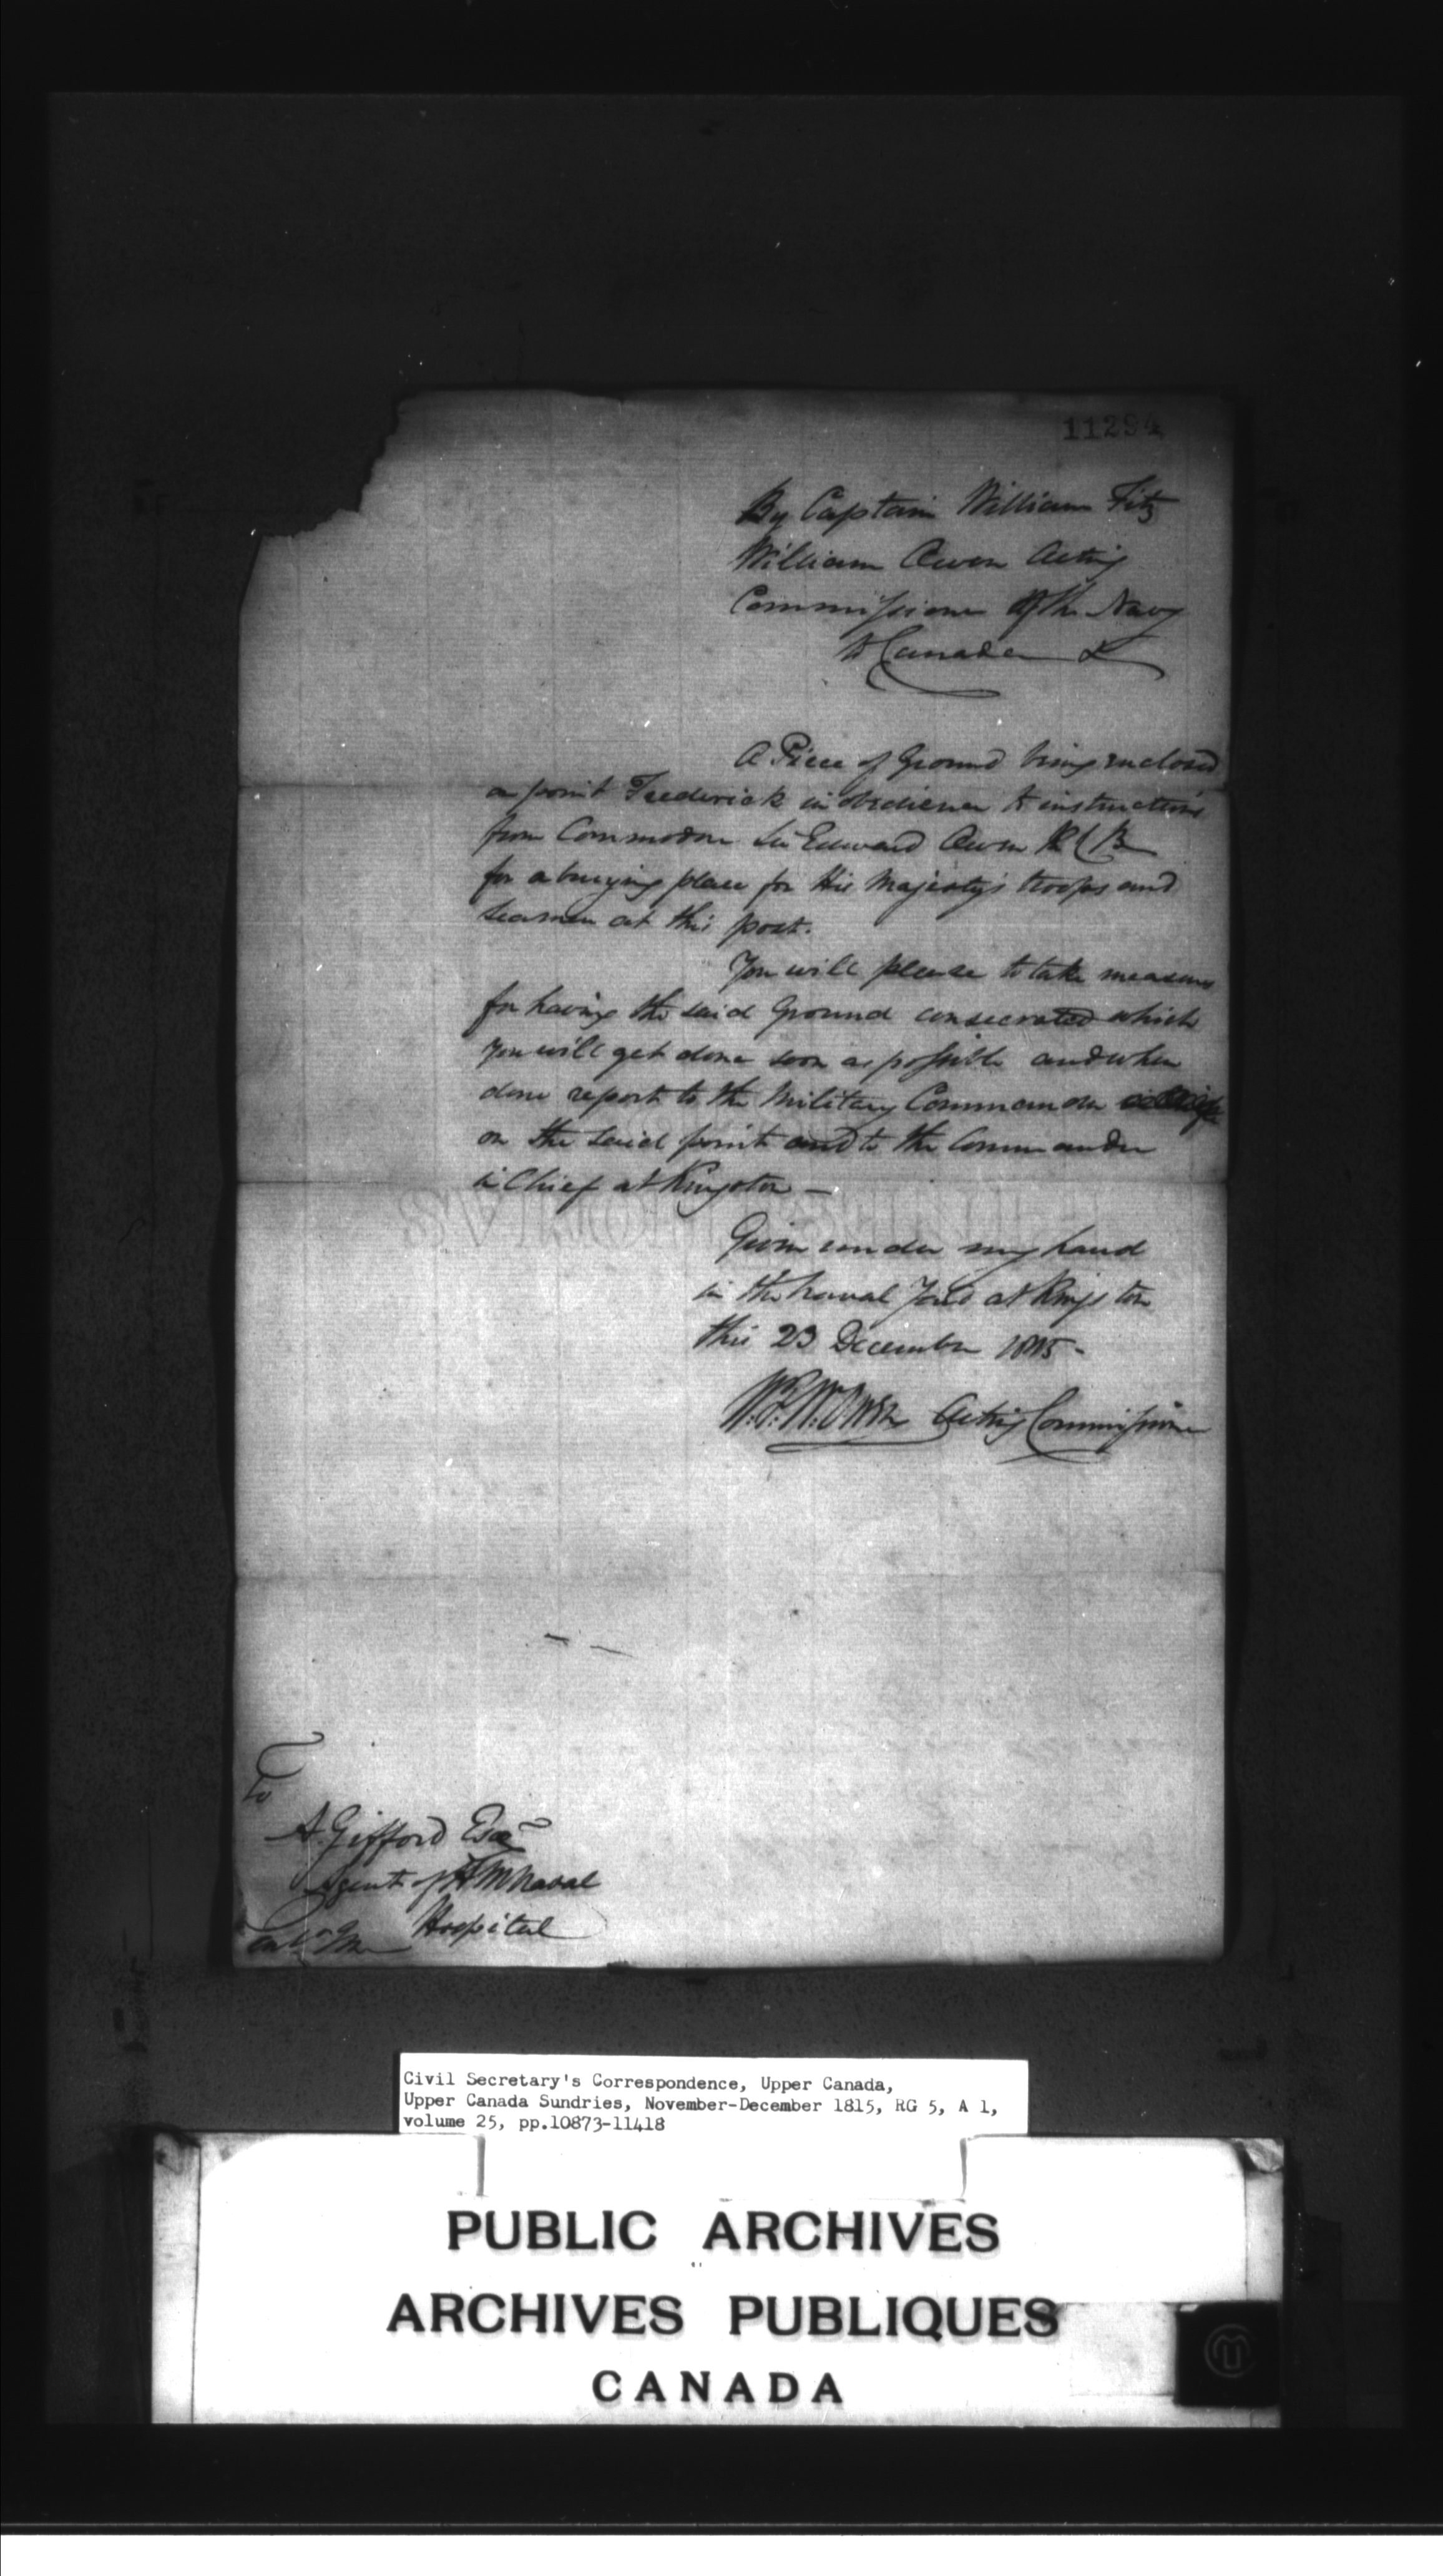 11294
By Captain William Fitz
William Owen Acting
Commissioner of the Navy
to Canada &
A Piece of Ground being enclosed
on point Frederick in obedience to instructions
from Commodore Sir Edward Owen K C B
for a burying place for His Majesty's troops and
Seamen at this post.
You will please to take measures
for having the said Ground consecrated which
you will get done soon as possible and when
done report to the Military Commander
on the said point and to the Commander
in Chief at Kingston —
Given under my hand
in the naval Yard at Kingston
this 23 December 1815 -
W. F. W. Owen Acting Commissioner
To
A. Gifford Esqr
Agent of H M Naval
Hospital
Civil Secretary's Correspondence, Upper Canada,
Upper Canada Sundries, November-December 1815, RG 5, A 1,
volume 25, pp.10873-11418
PUBLIC ARCHIVES
ARCHIVES PUBLIQUES
CANADA